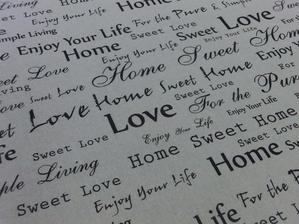 Sweet Love Enjoy Your Life For the Pure & Simple
Simple Living Enjoy Your Life Home Sweet Love
Sweet Love Home Enjoy Your Life Home Sweet Home
Living Sweet Love Love Home Sweet Home Enjoy
Love Sweet Love For the Pure
Love Enjoy Your Life Sweet Home
Sweet Love Home Sweet Home
Simple Living Enjoy Your Life Home
Sweet Love For the
Sweet Home